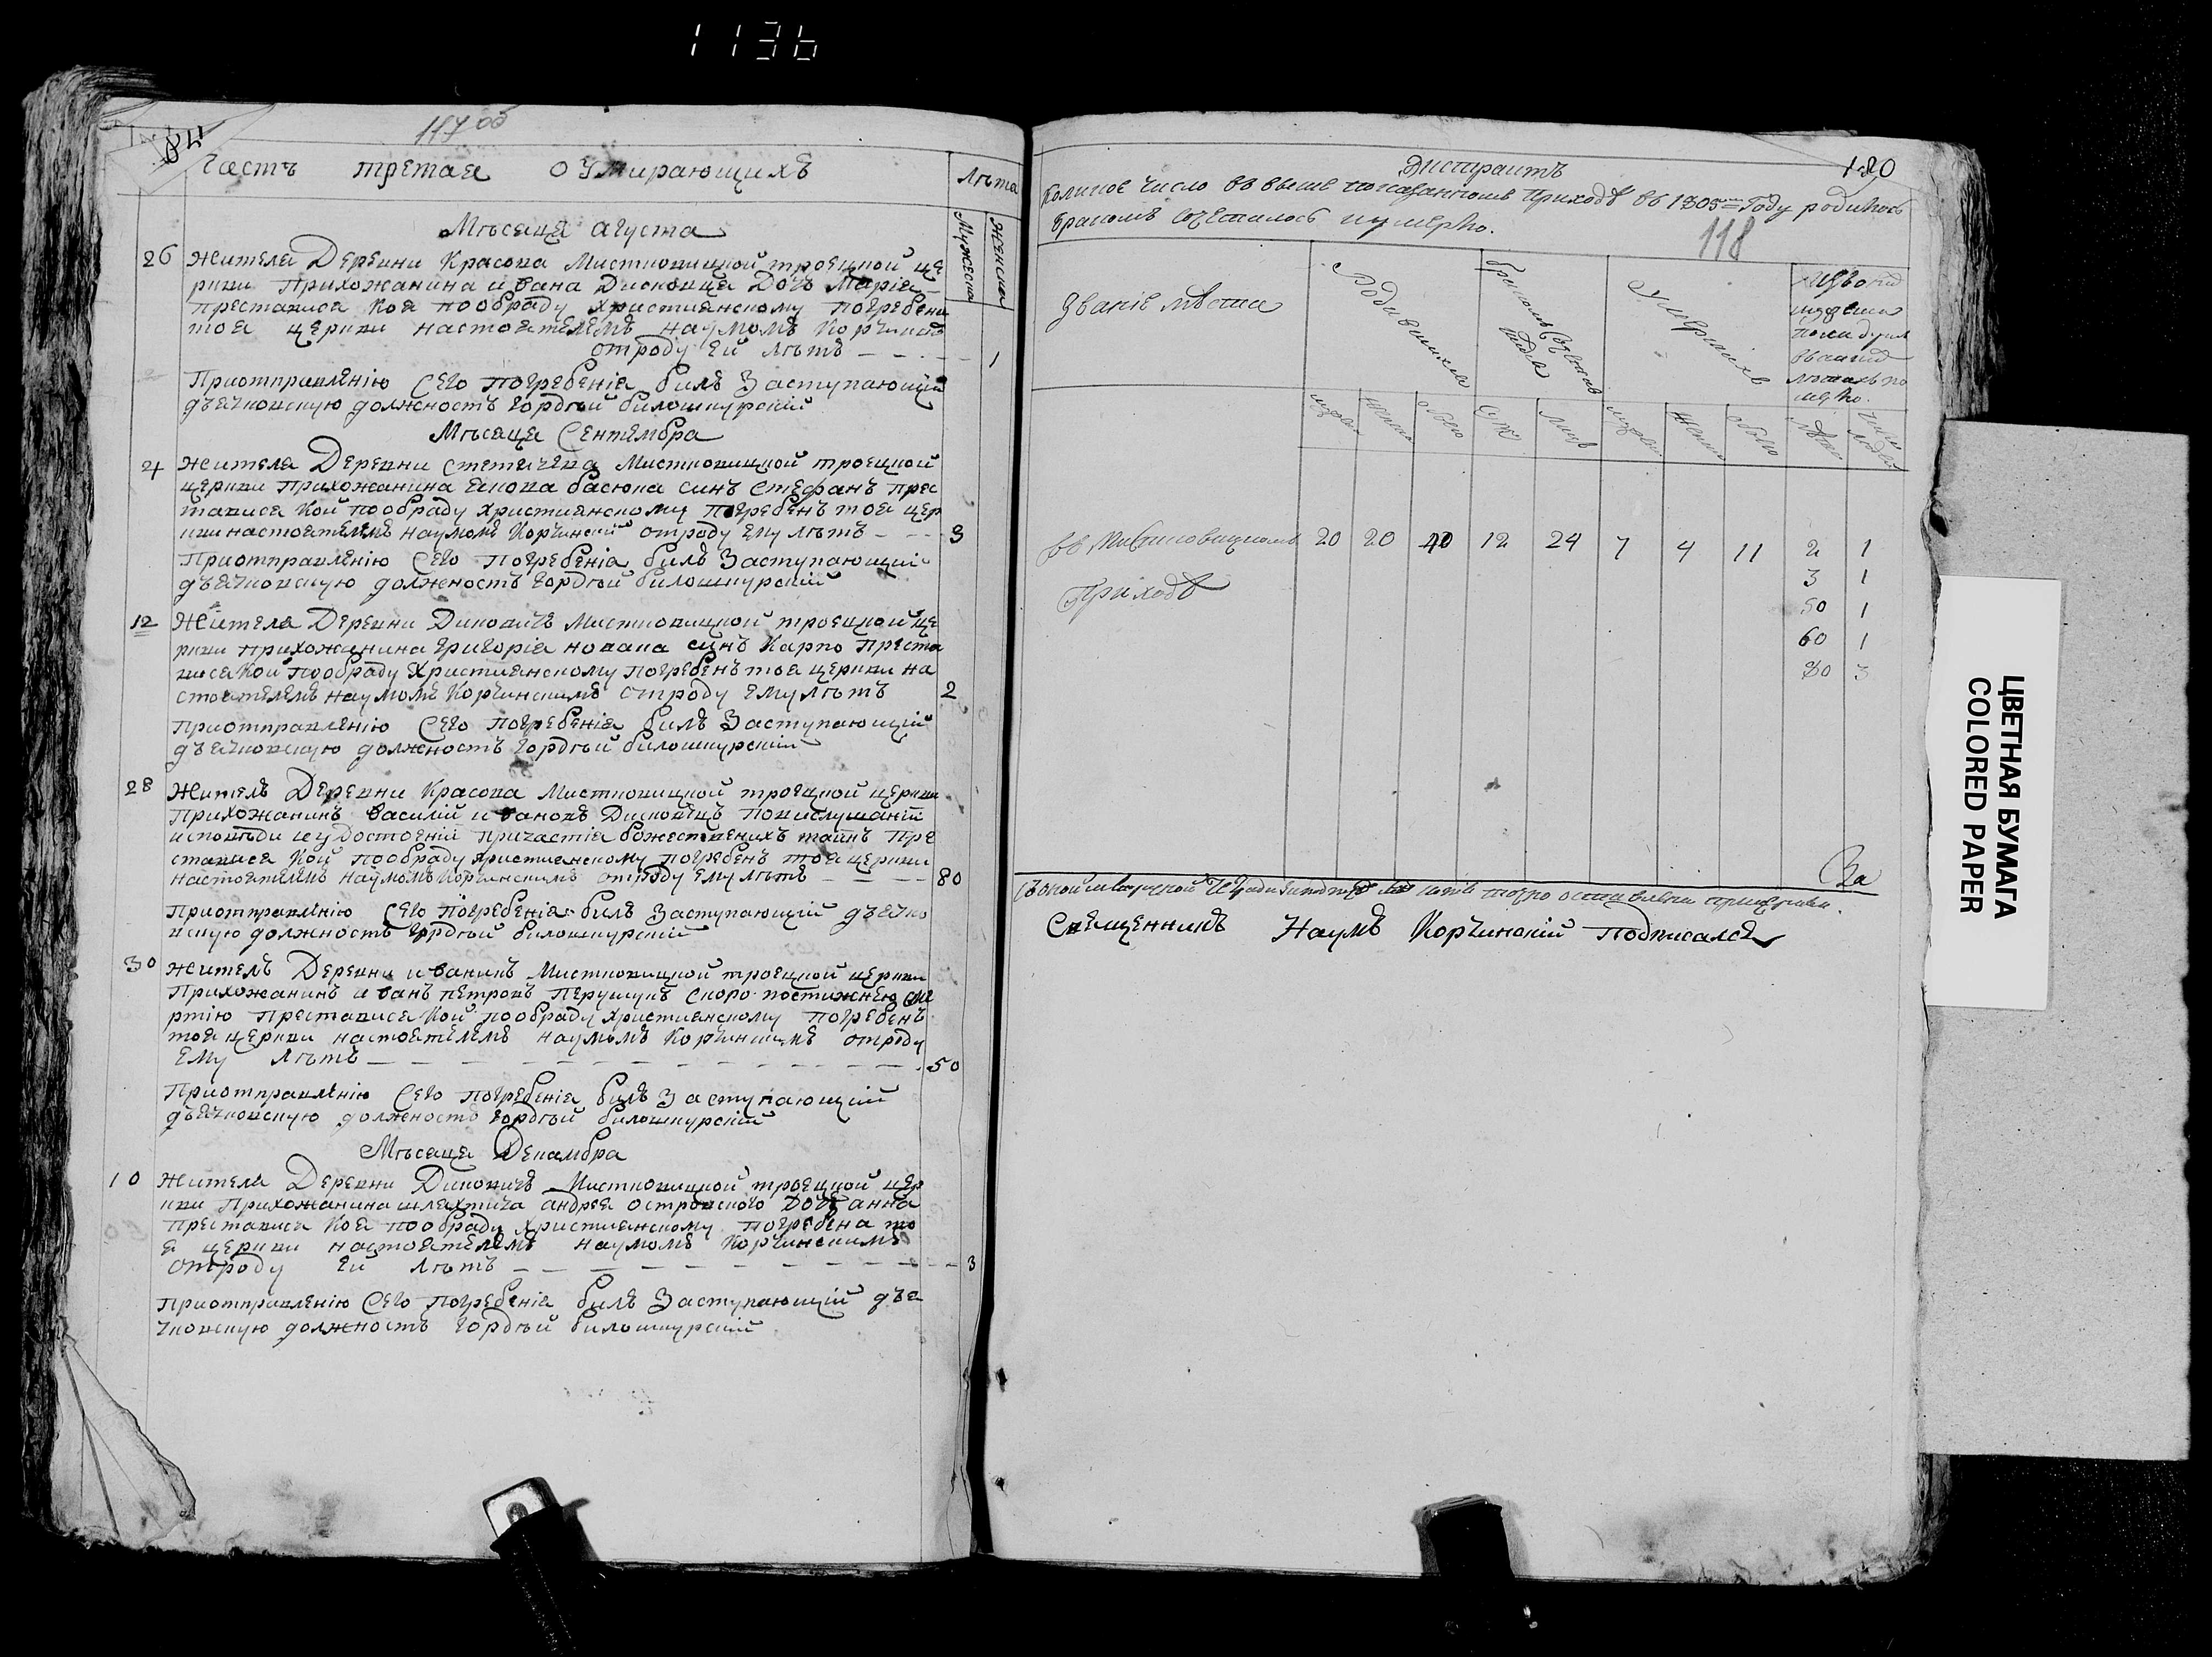 1136
118
117 об
Часть третая о Умирающихъ
Лѣта
Мужеска
Женска
Мѣсяца Августа
26 жителя Деревни Красова Мистковицкой троецкой це
ркви Прихожанина ивана Дисковца Дочь Марія
преставися Коя пообраду христианскому погребена
тоя церкви настоятелемъ наумомъ Корчинск
отроду Ей лѣтъ 1
Приотправлѣнію Сего погребенія билъ Заступающій
дьячковскую должность Гордѣй билошкурскій
Мѣсяца Сентембра
4 жителя Деревни Мистковицкой троецкой
церкви Прихожанина Басюка синъ Стефанъ прес
тавися Кой пообраду христианскому погребенъ тоя цер
кви настоятелемъ наумомъ Корчинский отроду Ему лѣтъ 3
Приотправлѣнію Сего погребенія билъ Заступающій
дьячковскую должность Гордѣй билошкурскій
12 Жителя Деревни Диковичъ Мистковицкой троецкой це
ркви прихожанина Григорія новака синъ Карпо Преста
вися Кой пообраду Христианскому погребенъ тоя церкви на
стоятелемъ наумомъ Корчинскимъ отроду Ему лѣтъ 2
Приотправлѣнію Сего погребенія билъ Заступающій
дьячковскую должность Гордѣй билошкурскій
28 Житель Деревни Красова Мистковицкой троецкой церкви
Прихожанинъ Василій ивановъ Дисковецъ повислушаній
исповѣди иудостоеній причастія божественихъ таинъ Пре
ставися Кой пообраду христианскому погребенъ тоя церкви
настоятелемъ наумомъ Корчинскимъ отроду Ему лѣтъ 80
Приотправлѣнію Сего погребенія билъ Заступающій дьячко
вскую должность Гордѣй билошкурскій
30 житель Деревни иваникъ Мистковицкой троецкой церкви
Прихожанинъ иванъ петровъ Скоропостижнею сме
ртію преставися Кой пообраду христианскому погребенъ
тоя церкви настоятелемъ наумомъ Корчинскимъ отроду
Ему лѣтъ 50
Приотправлѣнію Сего погребенія билъ Заступающий
дьячковскую должность Гордѣй билошкурскій
Мѣсяца Декамбра
10 жителя Деревни Диковичъ Мистковицкой троецкой цер
кви Прихожанина шляхтича андрея островского Дочь анна
преставися Коя пообраду христианскому погребена то
я церкви настоятелемъ наумомъ Корчинскимъ
отроду Ей лѣтъ 3
приотправлѣнію Сего погребенія билъ Заступающий дъя
чковскую должность Гордѣй билошкурскій
120
118
Екстрактъ
Коликое число въ выше показанномъ приходѣ въ 1805 Году родилось
бракомъ сочеталось и умерло.
Званіе мѣста
Родившихся
Умершихъ
въ Мистковицкомъ 20 20 40 12 24 7 4 11 2 1
Приходѣ 3 1
50 1
60 1
80 3
Священникъ Наумъ Корчинскій Подписался
ЦВЕТНАЯ БУМАГА
COLORED PAPER